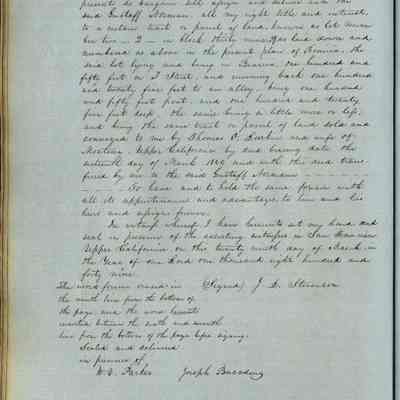 presents do bargain sell assign and deliver unto the
said Gustoff Norman, all my right title and interest
to a certain tract or parcel of land known as lot num
ber two - 2 - in block thirty nine 39 as laid down and
numbered as above in the present plan of Benicia, the
said lot lying and being in Benicia, one hundred and
fifty feet on I Street, and running back one hundred
and twenty five feet to an alley. being one hundred
and fifty feet front, and one hundred and twenty
five feet deep, the same being a little more or less,
and being the same tract or parcel of land sold and
conveyed to me by Thomas O. Larkin and wife of
Monterey, Upper California by deed bearing date the
day of March 1849 and with this deed trans
ferred by me to the said Gustoff Normann
To have and to hold the same forever with
all its appurtenances and advantages to him and his
heirs and assigns forever.
In witness whereof I have hereunto set my hand and
seal in presence of the subscribing witnesses in San Francisco
Upper California on this twenty ninth day of March in
the Year of our Lord one thousand eight hundred and
forty nine.
The word forever erased in (Signed) J. D. Stevenson
the ninth line from the bottom of
the page and the word hereunto
inserted between the sixth and seventh
line from the bottom of the page before signing.
Sealed and delivered
in presence of
W. C. Parker Joseph